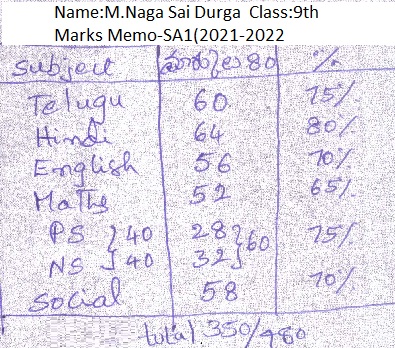 Name:M.Naga Sai Durga Class:9th
Marks Memo-SA1(2021-2022
Subject మార్కులు 80 %
Telugu 60 75%
Hindi 64 80%
English 56 70%
Maths 52 65%
PS }40 28}60 75%
NS }40 32
Social 58 70%
total 350/480